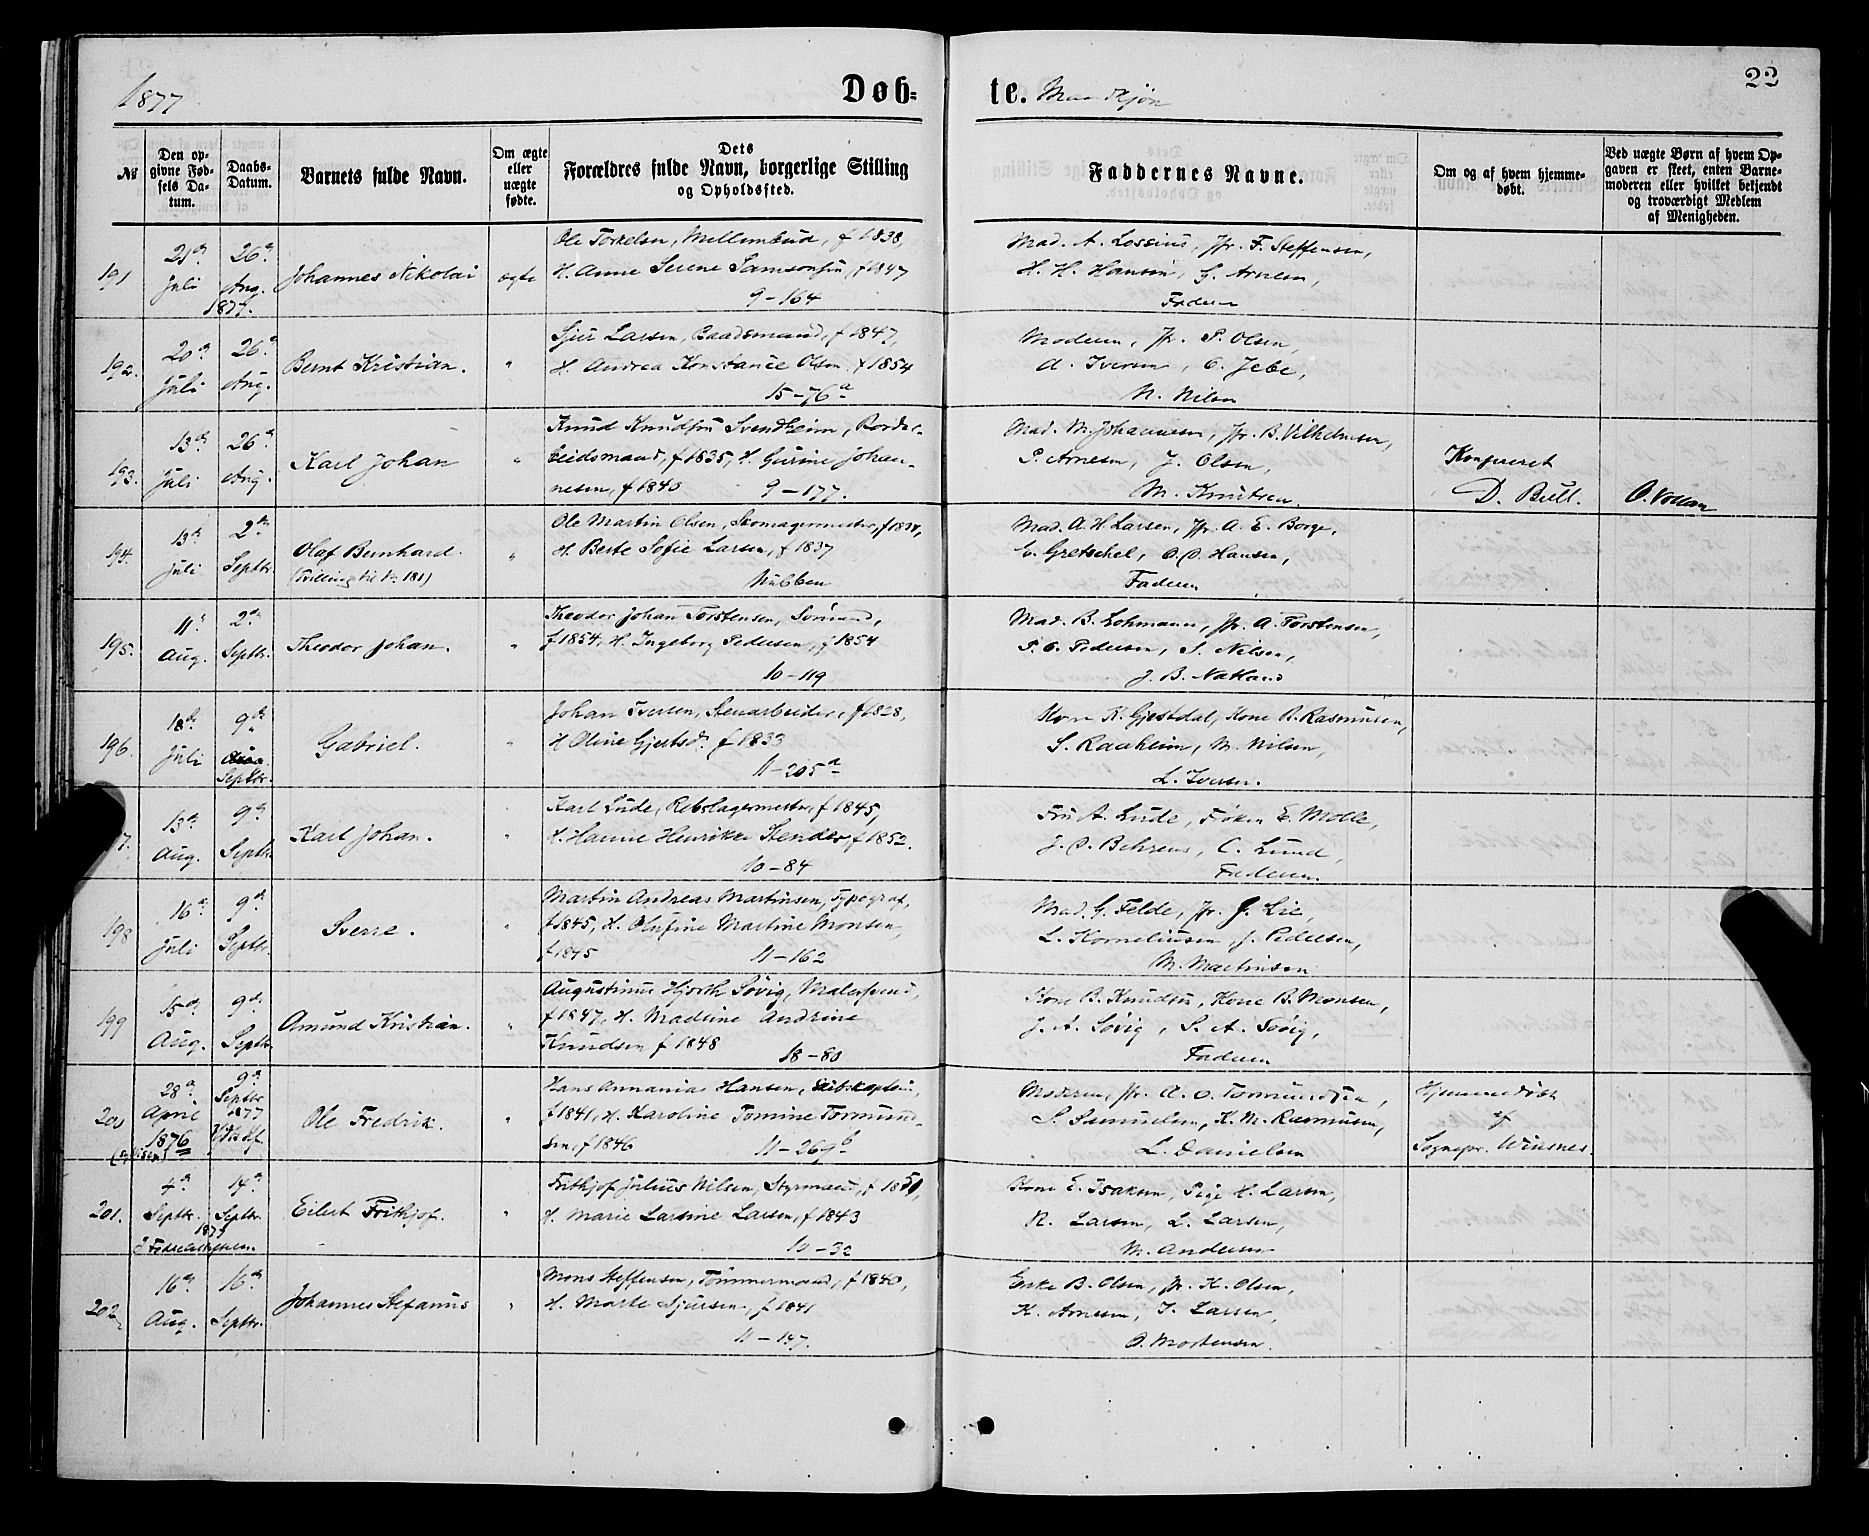 1877
Døb-
te. Mandkjøn
22
№
Den opgivne Fødsels Datum.
Daabs-Datum.
Barnets fulde Navn.
Om ægte eller uægte fødte.
Dets Forældres fulde Navn, borgerlige Stilling og Opholdssted.
Faddernes Navne.
Om og af hvem hjemmedøbt.
Ved uægte Børn af hvem Opgaven er skeet, enten Barnemoderen eller hvilket bekjendt og troværdigt Medlem af Menigheden.
191
21de Juli
26de Aug. 1877.
Johannes Nikolai
ægte
Ole Torkelsen, Mellembud, f 1838,
H. Anne Serene Samsonsen, f 1847
9-164
Mad. A. Lossius, Jfr. F. Steffensen,
H. H. Hansen, G. Arnesen,
Faderen
192.
20de Juli
26de Aug.
Bernt Kristian.
"
Sjur Larsen, Baadsmand, f 1847,
H. Andrea Konstance Olsen f 1854
15-76a
Moderen, Jfr. P. Olsen,
A. Iversen, C. Jebe,
N. Nilsen
193.
13de Juli
26de Aug.
Karl Johan
"
Knud Knudsen Svendheim, Bordar-
beidsmand, f 1835, H. Gurine Johan-
nesen, f 1840
9-177.
Mad. M. Johannesen, Jfr. B. Vilhelmsen,
P. Arnesen, J. Olsen,
M. Knutsen.
Konfereret
D. Bull.
O. Vollan
194.
13de Juli
2den Septbr.
Olaf Bernhard.
(Tvilling til No 181)
"
Ole Martin Olsen, Skomagermester, f 1834,
H. Berte Sofie Larsen, f 1837
Nubben
Mad. A. H. Larsen, Jfr. A. E. Borge,
E. Gretschel, O. O. Hansen,
Faderen
195.
11te Aug.
2den Septbr.
Theodor Johan.
"
Theodor Johan Torstensen, Sømand,
f 1854, H. Ingeborg Pedersen, f 1854
10-119
Mad. B. Lohmann, Jfr. A. Torstensen,
P. O. Pedersen, S. Nilsen,
J. B. Natland
196.
18de Juli
9de Septbr.
Gabriel.
"
Johan Iversen, Stenarbeider, f 1828,
H Oline Gjertsd. f 1833
11-205a
Kone K. Gjestdal, Kone B. Rasmusen,
S. Raaheim, M. Nilsen,
L. Iversen.
7.
13de Aug.
9de Septbr.
Karl Johan.
"
Karl Lude, Rebslagermester, f 1845,
H. Hanne Henrikke Stender, f 1852.
10-84
Fru A. Lude, Frøken E. Molle,
J. O. Behrens, C. Lund,
Faderen.
198
16de Juli
9de Septbr.
Sverre.
"
Martin Andreas Martinsen, Typograf,
f 1845, H. Olufine Martine Monsen,
f 1845
11-162
Mad. G. Felde, Jfr. J. Lie,
L. Korneliusen, J. Pedersen,
M. Martinsen
199
15de Aug.
9de Septbr.
Amund Kristian.
"
Augustinus Hjorth Søvig, Malersvend,
f 1847, H. Madline Andrine
Knudsen f 1848
18-80
Kone B. Knudsen, Kone B. Monsen,
J. A. Søvig, S. A. Søvig,
Faderen
200
28de April 1876
9de Septbr 1877
Ole Fredrik.
"
Hans Annanias Hansen, Skibskaptein,
f 1841, H. Karoline Tomine Tormund-
sen, f 1846
11-269b
Moderen, Jfr. A. O. Tormundsen,
S. Samuelsen, K. M. Rasmusen,
L. Danielsen
Hjemmedøbt
af
Sognepr. Winsnes
201.
4de Septbr.
14de Septbr. 1877
i Fødselsstiftelsen.
Eilert Frithjof.
"
Frithjof Julius Nilsen, Styrmand, f 1851,
H. Marie Larsine Larsen, f 1843
10-32
Kone E. Isaksen, Pige H. Larsen,
R. Larsen, L. Larsen,
M. Andersen
202
16de Aug.
16de Septbr.
Johannes Stefanus
"
Mons Steffensen, Tømmermand, f 1840,
H. Marte Sjursen, f 1841
11-147.
Enke B. Olsen, Jfr. H. Olsen,
K. Arnesen, I. Larsen,
O. Mortensen.